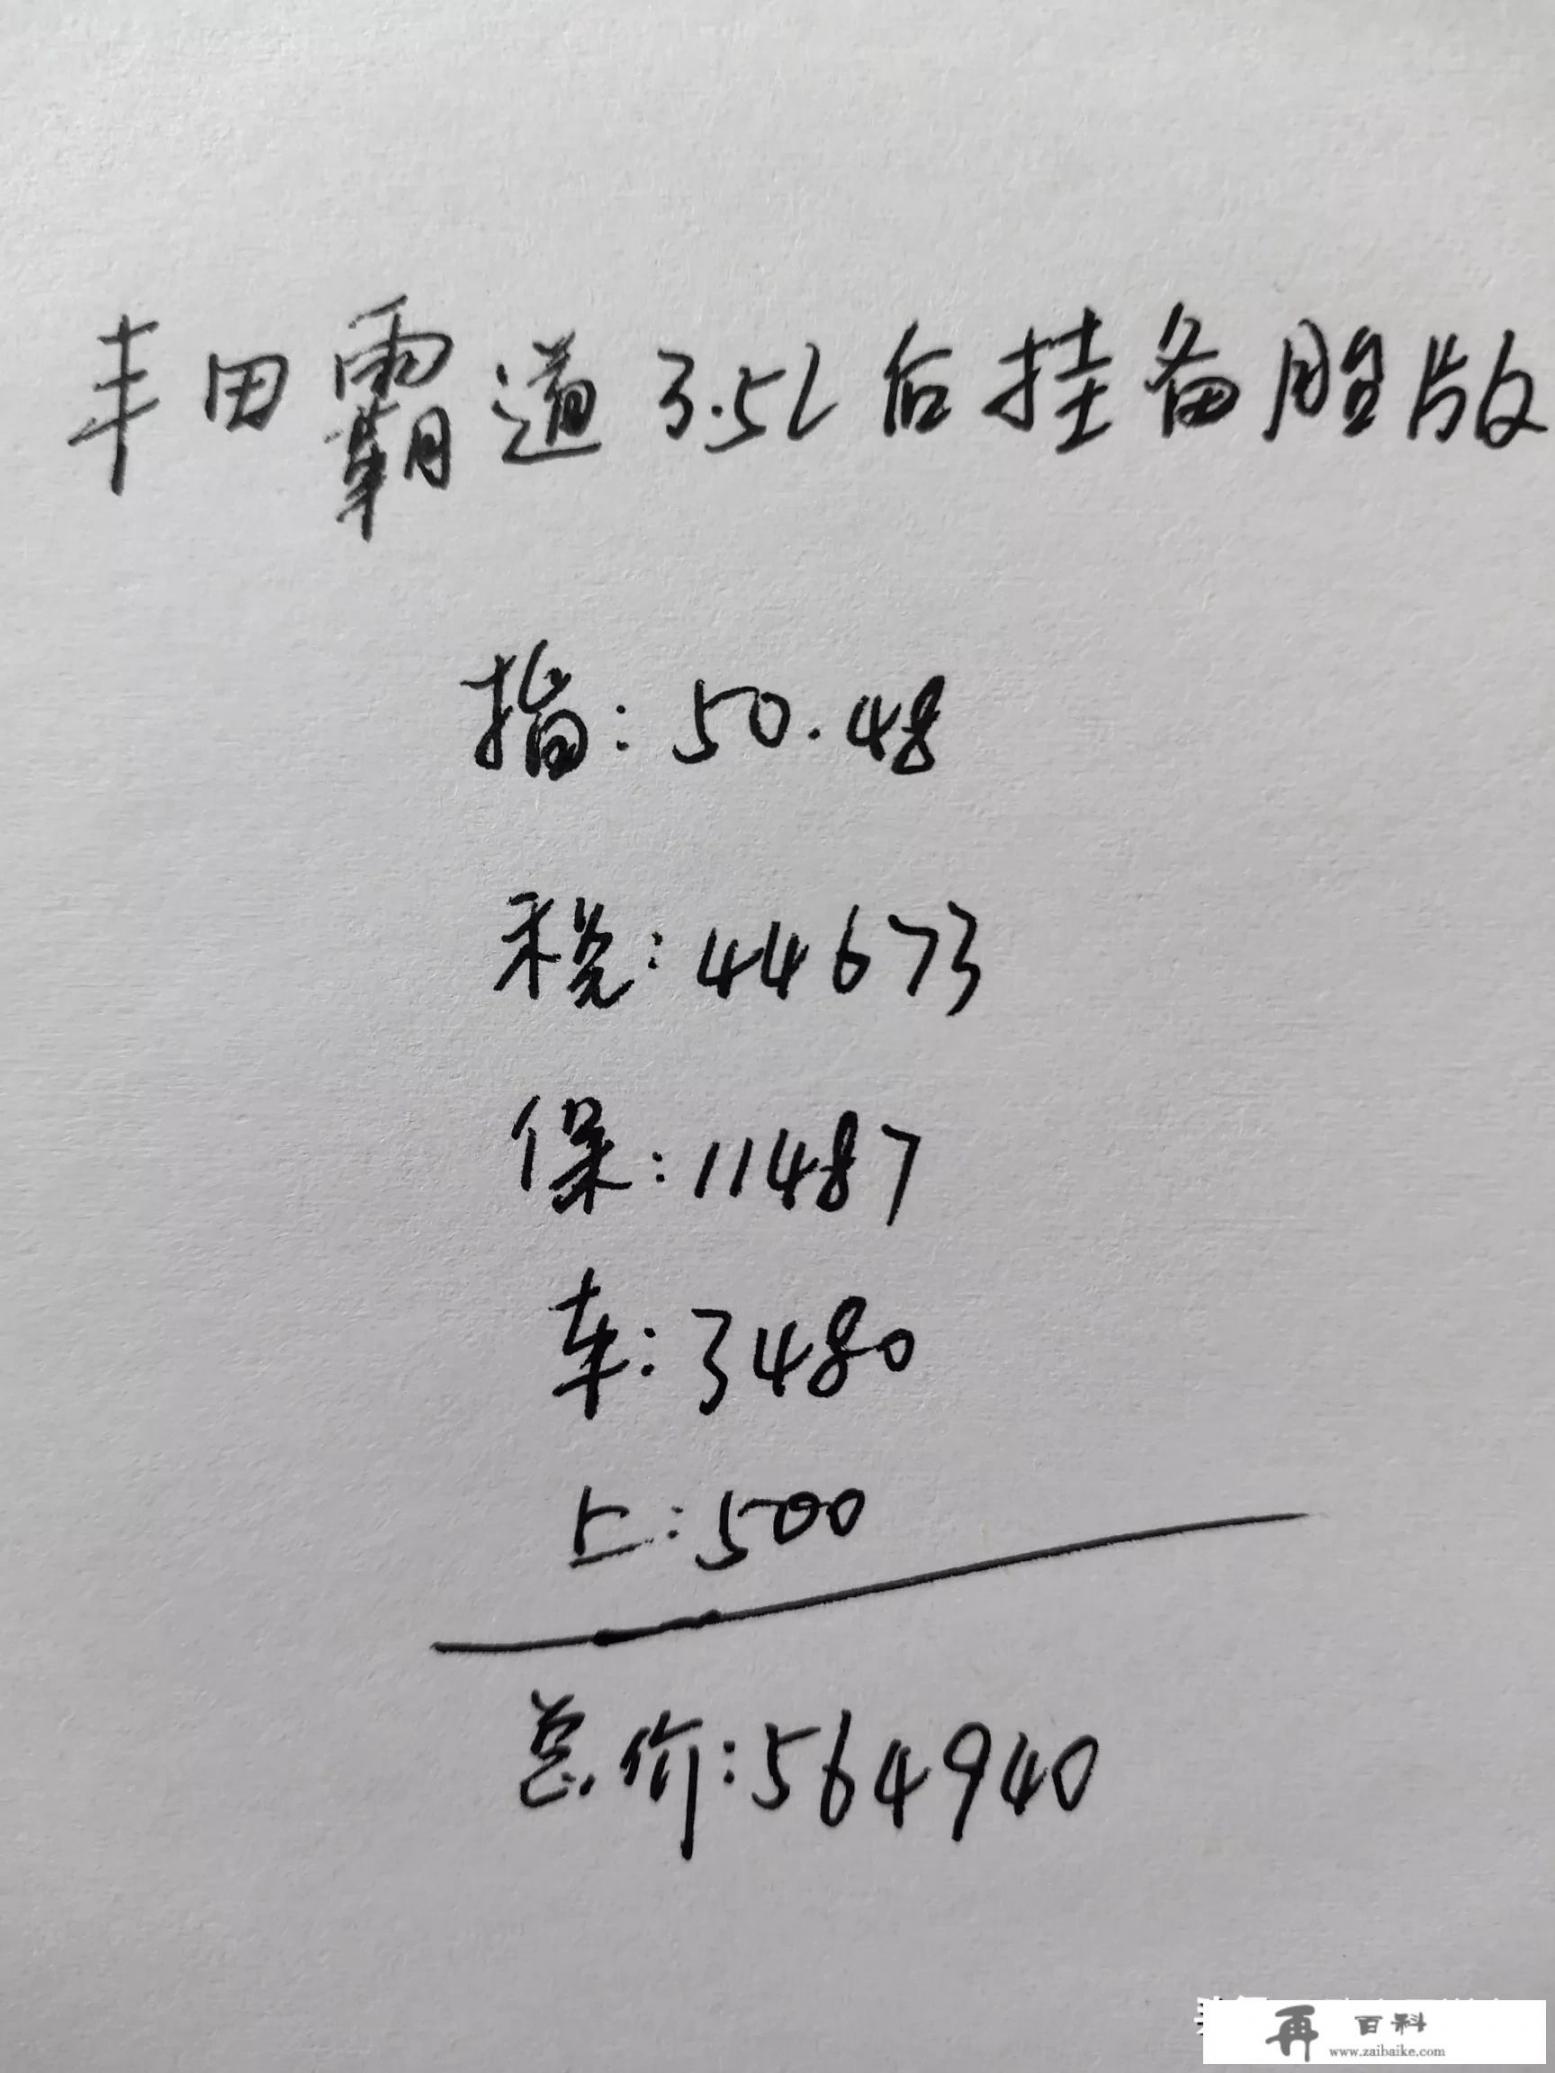 丰田霸道3.5L后挂备胎版
指:50.48
税:44673
保:11487
车:3480
上:500
总价:564940
再 百科
www.zaibaike.com